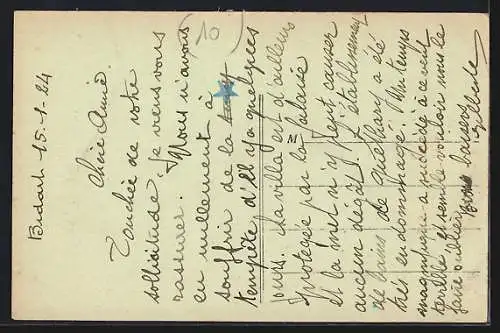 Bidart 15-1-24
10
Chère Amie.
Touchée de votre
sollicitude je viens vous
rassurer. Nous n'avons
eu nullement à
souffrir de la
tempête d'il y a quelques
jours. La villa est d'ailleurs
protégée par la falaise
M
et la mer n'y peut causer
aucun dégat. L'établissement
de bains de Guéthary a été
très endommagé. Un temps
magnifique a succédé à ce vent
terrible et semble vouloir nous le
faire oublier. Bons baisers